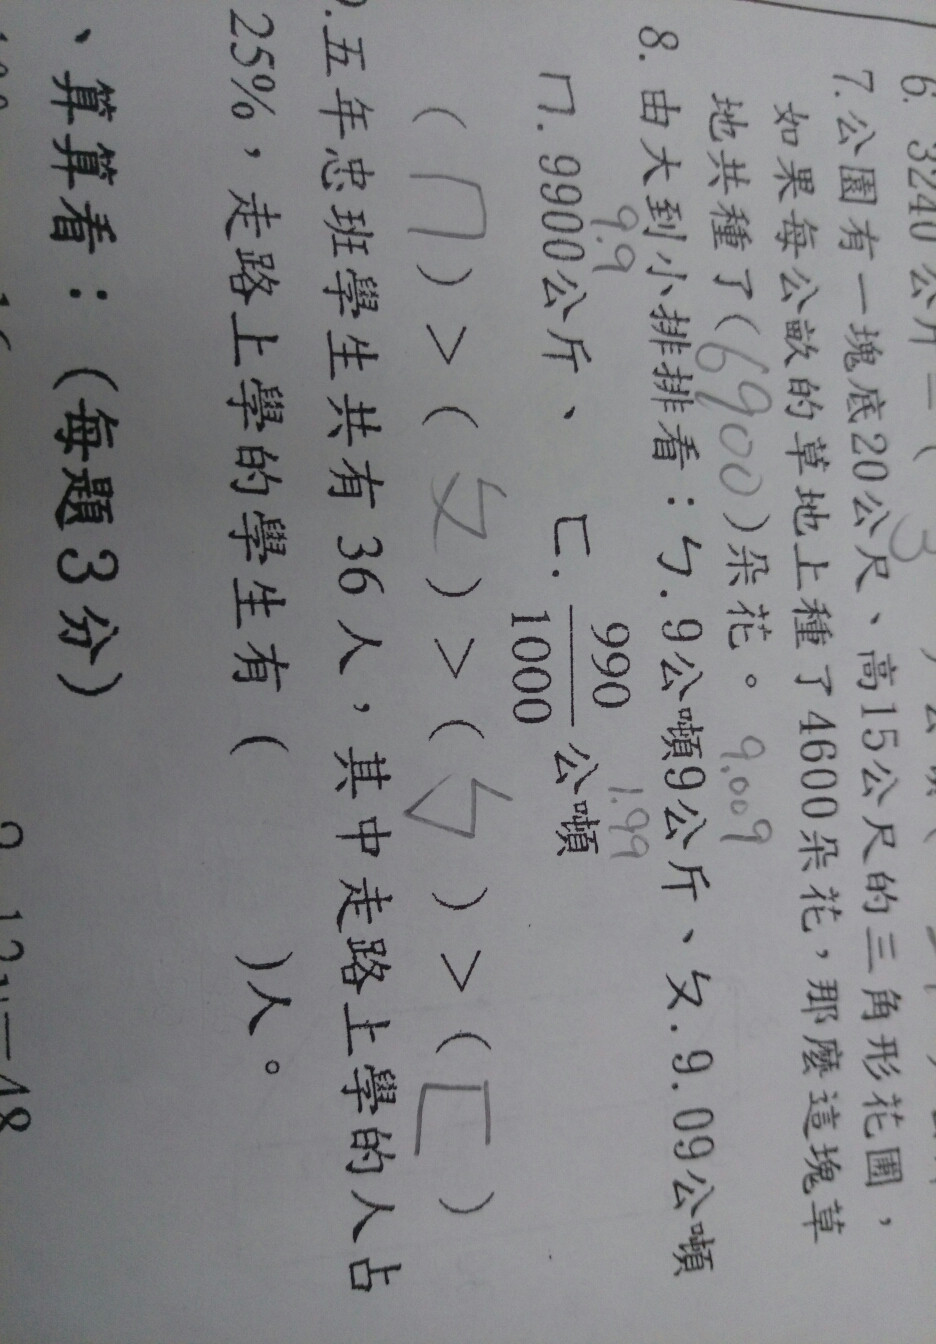 6. 3240公斤=(3
7.公園有一塊底20公尺、高15公尺的三角形花圃，
如果每公畝的草地上種了4600朵花，那麼這塊草
地共種了(6900)朵花。
9.009
8.由大到小排排看：ㄅ.9公噸9公斤、ㄆ.9.09公噸
9.9
1.99
ㄇ.9900公斤、 ㄈ. 990/1000 公噸
(ㄇ)>(ㄆ)>(ㄅ)>(ㄈ)
.五年忠班學生共有36人，其中走路上學的人占
25%，走路上學的學生有( )人。
、算算看：(每題3分)